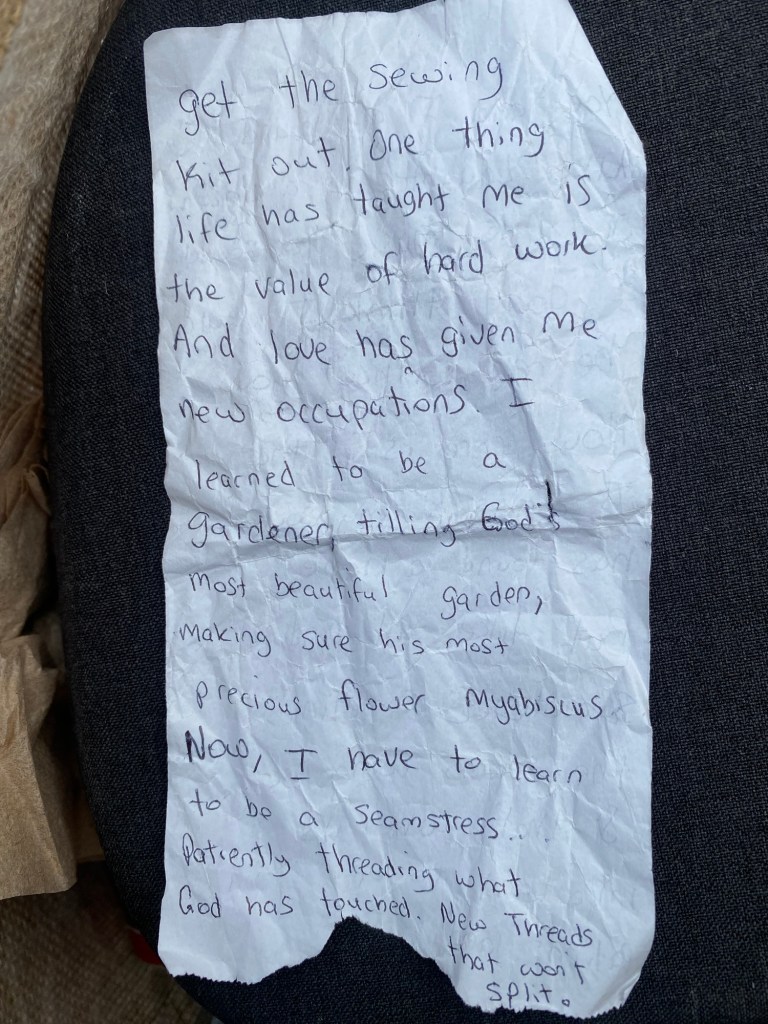 get the sewing
kit out. One thing
life has taught me is
the value of hard work.
And love has given me
new occupations. I
learned to be a
gardener, tilling God's
most beautiful garden,
making sure his most
precious flower Myabiscus.
Now, I have to learn
to be a seamstress....
Patiently threading what
God has touched. New Threads
that won't
split.